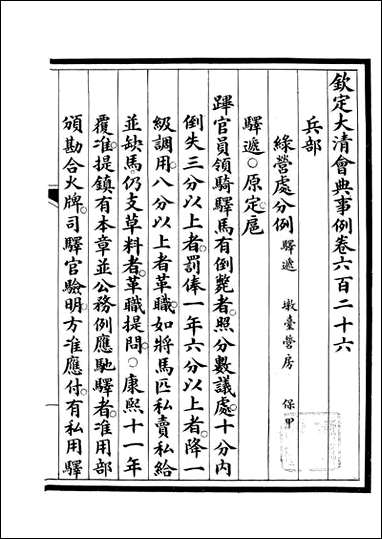 欽定大清會典事例卷六百二十六
兵部
綠營處分例 驛遞 墩臺營房 保甲
驛遞○原定扈
蹕官員領騎驛馬有倒斃者照分數議處十分內
倒失三分以上者罰俸一年六分以上者降一
級調用八分以上者革職如將馬匹私賣私給
並缺馬仍支草料者革職提問○康熙十一年
覆准提鎮有本章並公務例應馳驛者准用部
頒勘合火牌司驛官驗明方准應付有私用驛